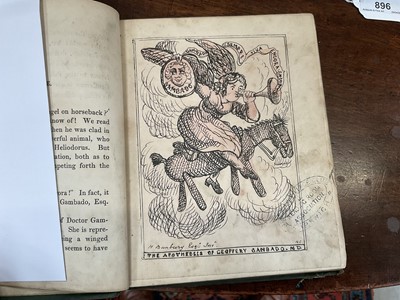 896
GAMBADO
gel on horseback?
now of! We read
hen he was clad in
erful animal, who
Heliodorus. But
ation, both as to
peting forth the
ora!" In fact, it
Gambado, Esq.
of Doctor Gam-
She is repre-
ting a winged
seems to have
H Bunbury Esqr. Invt.
THE APOTHEOSIS OF GEOFFERY GAMBADO, M.D.